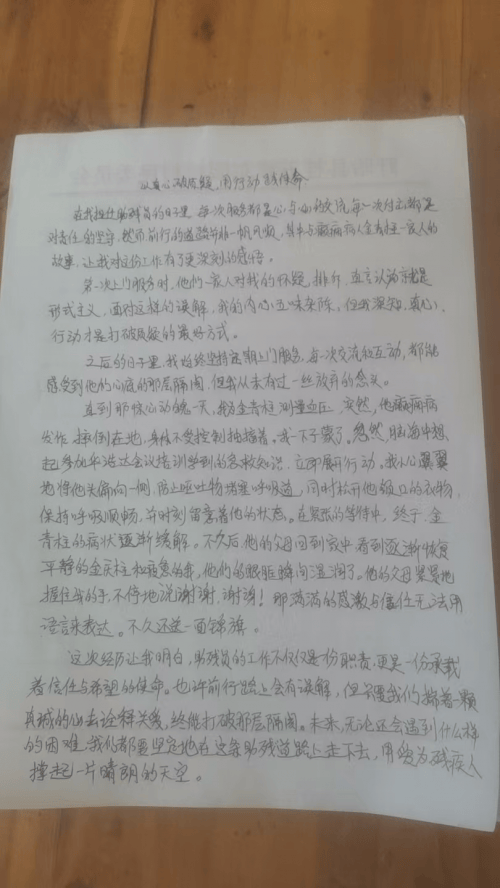 以真心破质疑，用行动践使命
在我担任助残员的日子里，每次服务都是心与心的交流，每一次付出都是
对责任的坚守，然而前行的道路并非一帆风顺，其中与癫痫病人金青柱一家人的
故事，让我对这份工作有了更深刻的感悟。
第一次上门服务时，他们一家人对我的怀疑，排斥，直言认为就是
形式主义，面对这样的误解，我的内心五味杂陈，但我深知，真心，
行动才是打破质疑的最好方式。
之后的日子里，我始终坚持定期上门服务，每次交流和互动，都能
感受到他们心底的那层隔阂，但我从未有过一丝放弃的念头。
直到那惊心动魄一天，我为金青柱测量血压，突然，他癫痫病
发作，摔倒在地，身体不受控制抽搐着。我一下子蒙了。忽然，脑海中想
起参加平语达会议培训学到的急救知识，立即展开行动。我小心翼翼
地将他头偏向一侧，防止呕吐物堵塞呼吸道，同时松开他领口的衣物，
保持呼吸顺畅，并时刻留意着他的状态。在焦急的等待中，终于，金
青柱的病状逐渐缓解。不久后，他的父母回到家中看到逐渐恢复
平静的金青柱和疲惫的我，他们的眼眶瞬间湿润了。他的父母紧紧地
握住我的手，不停地说谢谢，谢谢！那满满的感激与信任无法用
语言来表达。不久还送一面锦旗。
这次经历让我明白，助残员的工作不仅仅是一份职责，更是一份承载
着信任与希望的使命。也许前行路上会有误解，但只要我们揣着一颗
真诚的心去诠释关爱，终能打破那层隔阂。未来，无论还会遇到什么样
的困难，我们都要坚定地在这条助残道路上走下去，用爱为残疾人
撑起一片晴朗的天空。